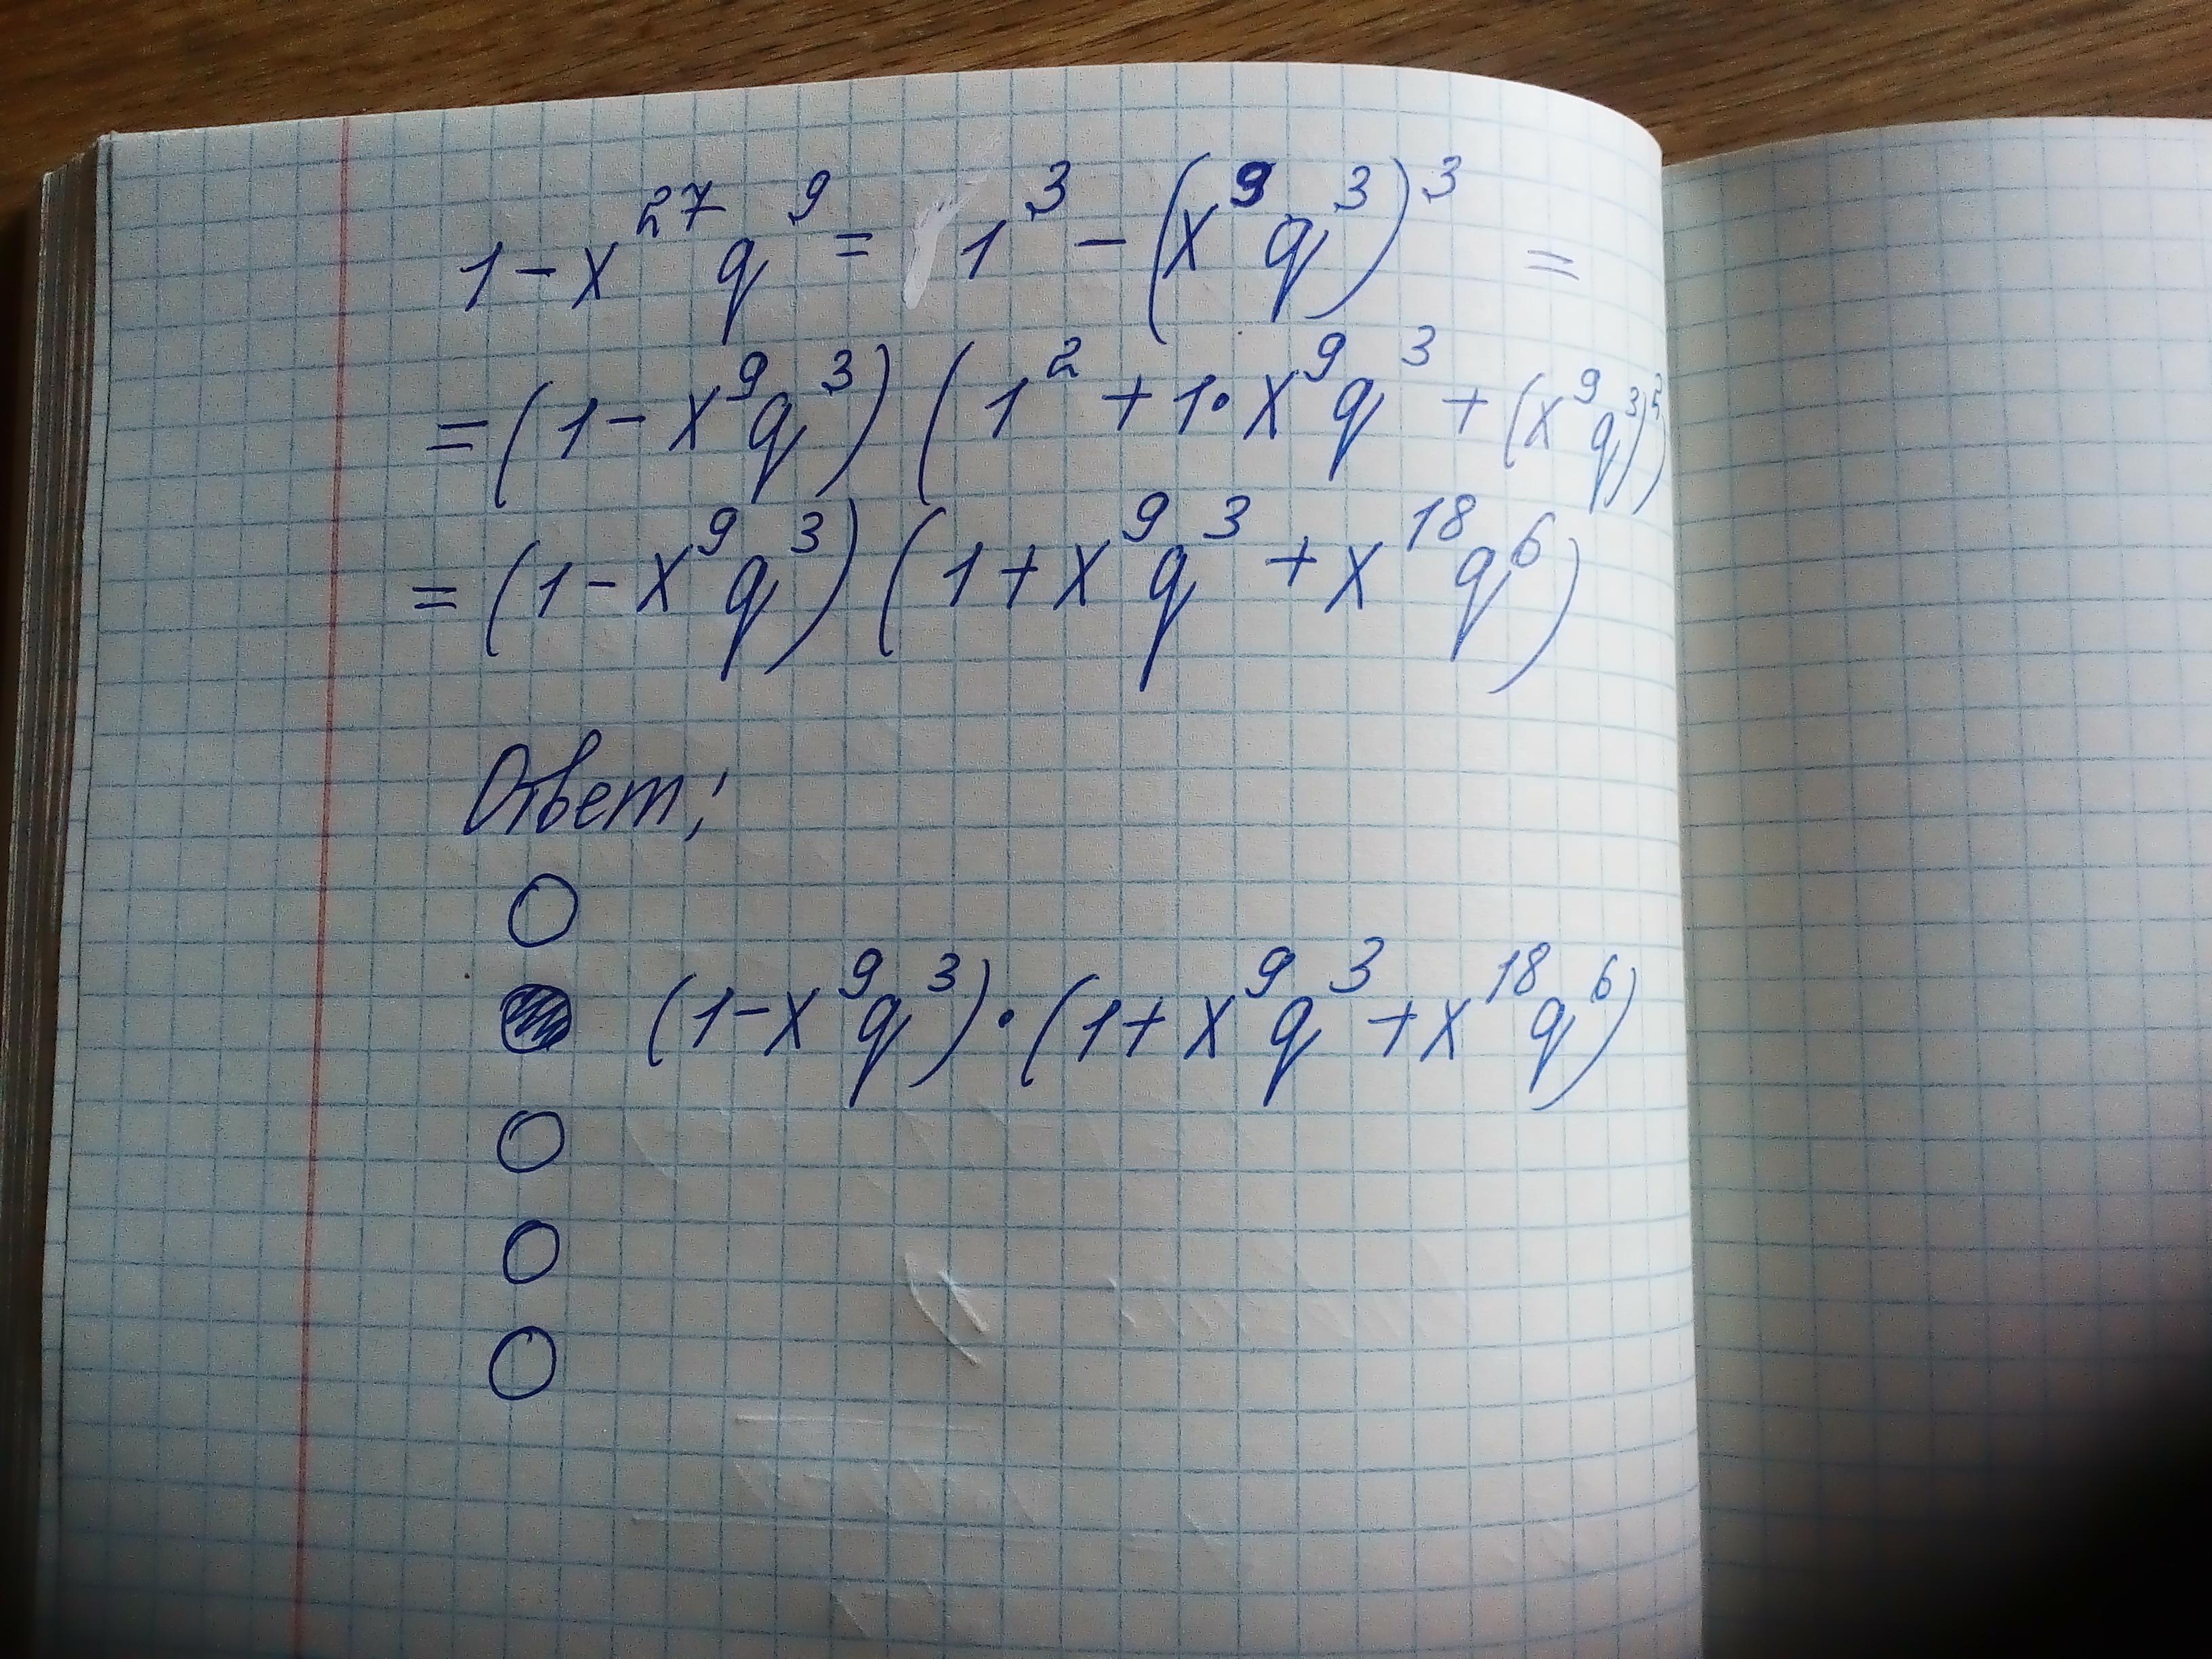 1-x²⁷q⁹ = 1³ - (x⁹q³)³ =
= (1-x⁹q³)(1² + 1·x⁹q³ + (x⁹q³)²)
= (1-x⁹q³)(1+x⁹q³ + x¹⁸q⁶)
Ответ:
(1-x⁹q³)·(1+x⁹q³+x¹⁸q⁶)